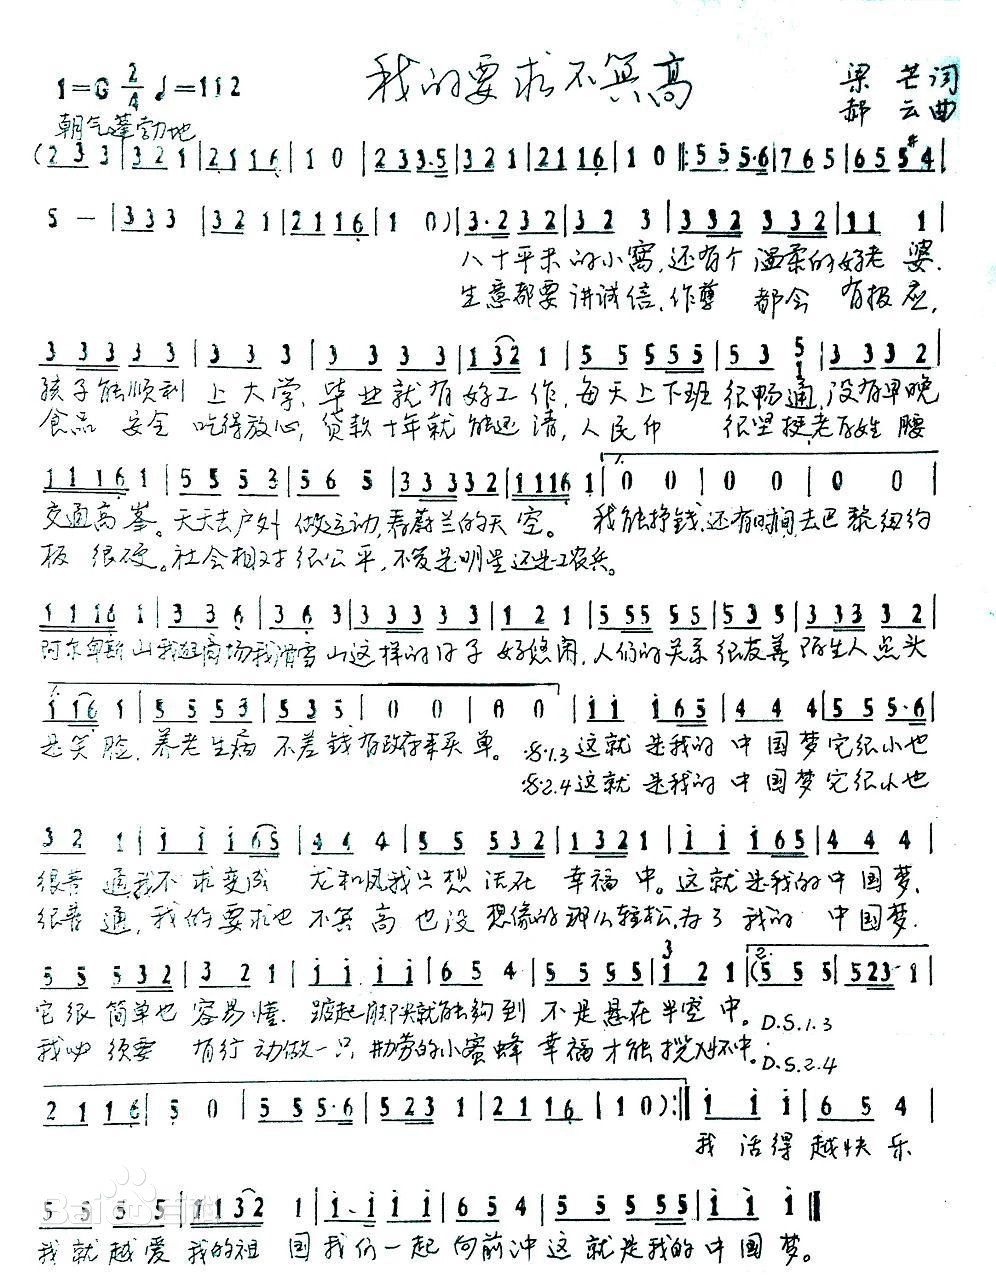 我的要求不算高
1=G 2/4 ♩=112
梁芒词
郝云曲
朝气蓬勃地
(2 3 3 | 3 2 1 | 2 1 1 6 | 1 0 | 2 3 3 3·5 | 3 2 1 | 2 1 1 6 | 1 0 |: 5 5 5·6 | 7 6 5 | 6 5 5 #4 |
5 — | 3 3 3 | 3 2 1 | 2 1 1 6 | 1 0 ) | 3·2 3 2 | 3 2 3 | 3 3 2 3 3 2 | 1 1 1 |
八十平米的小窝,还有个温柔的好老婆.
生意都要讲诚信,作孽都会有报应,
3 3 3 3 3 | 3 3 3 | 3 3 3 3 | 1 3 2 1 | 5 5 5 5 5 | 5 3 5 1 | 3 3 3 2 |
孩子能顺利上大学,毕业就有好工作,每天上下班很畅通,没有早晚
食品安全吃得放心,贷款十年就能还清,人民币很坚挺,老百姓腰
1 1 1 6 1 | 5 5 5 3 | 5 6 5 | 3 3 3 3 2 | 1 1 1 6 1 | 1. 0 0 | 0 0 | 0 0 |
交通高峯。天天去户外做运动,看蔚兰的天空。我能挣钱,还有时间,去巴黎纽约
板很硬。社会相对很公平,不管是明星还是工农兵。
1 1 1 6 1 | 3 3 6 | 3 6 3 | 3 3 3 3 3 | 1 2 1 | 5 5 5 5 5 | 5 3 5 | 3 3 3 3 2 |
阿尔卑斯山我逛商场我滑雪山这样的日子好悠闲,人们的关系很友善陌生人点头
1 1 6 1 | 5 5 5 3 | 5 3 5 | 0 0 | 0 0 | i i i 6 5 | 4 4 4 | 5 5 5·6 |
是笑脸,养老生病不差钱有政府来买单。𝄋1.3这就是我的中国梦它很小也
𝄋2.4这就是我的中国梦它很小也
3 2 1 | i i i 6 5 | 4 4 4 | 5 5 5 3 2 | 1 3 2 1 | i i i 6 5 | 4 4 4 |
很普通我不求变成龙和凤我只想活在幸福中。这就是我的中国梦.
很普通,我的要求也不算高也没想像的那么轻松,为了我的中国梦.
5 5 5 3 2 | 3 2 1 | i i i i | 6 5 4 | 5 5 5 5 | 3 i 2 1 | 2. (5 5 5 | 5 2 3 1 |
它很简单也容易懂.踮起脚尖就能够到不是悬在半空中。D.S.1.3
我必须要有行动做一只勤劳的小蜜蜂幸福才能搅入怀中。D.S.2.4
2 1 1 6 | 5 0 | 5 5 5·6 | 5 2 3 1 | 2 1 1 6 | 1 0 ) :| i i i | 6 5 4 |
我活得越快乐
5 5 5 5 | 1 1 3 2 | 1 i | i i i i | 6 5 4 | 5 5 5 5 5 | i i | i i ‖
我就越爱我的祖国我们一起向前冲这就是我的中国梦。
Baidu百科